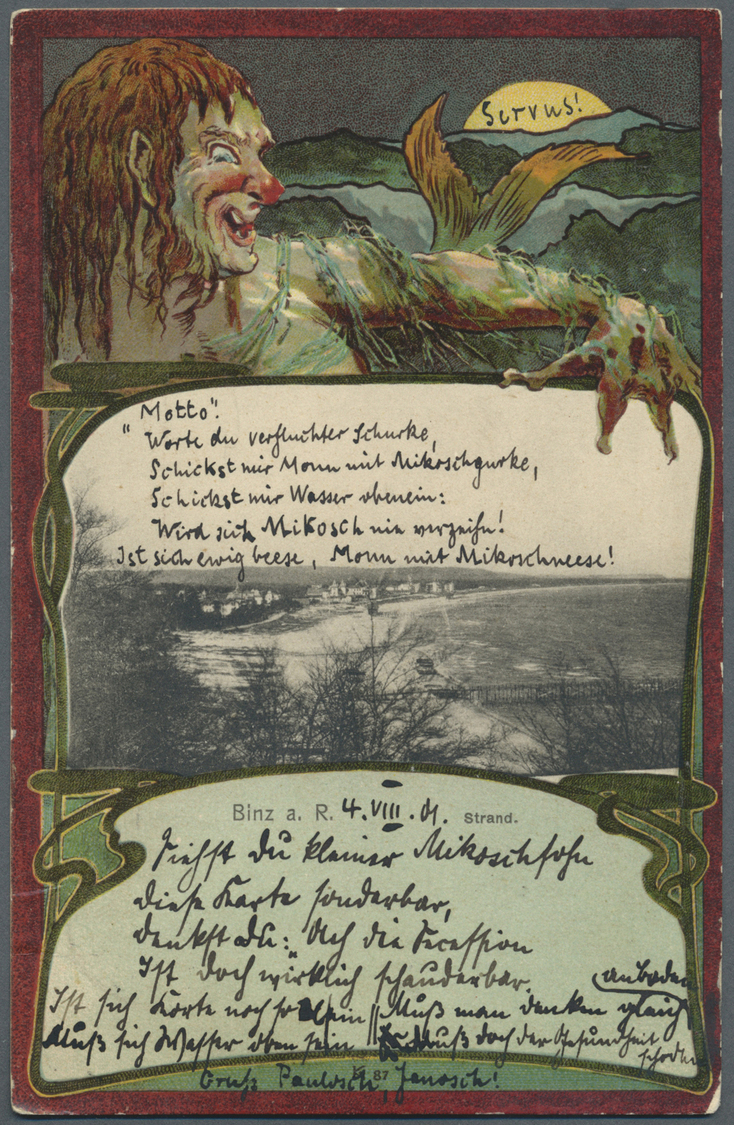 Servus!
Motto":
"Warte du verfluchter Schurke,
Schickst mir Monn mit Mikoschgurke,
Schickst mir Wasser obenein:
Wird sich Mikosch nie verzeihn!
Ist sich ewig beese, Monn mit Mikoschneese!
Binz a. R. 4. VIII. 01. Strand.
Siehst du kleiner Mikoschsohn
diese Karte sonderbar,
denkst du: Ach die Secession
Ist doch wirklich schauderbar.
Ist sich Karte noch so klein || Muß man denken gleich anbaden
Muß sich Wasser oben sein || Muß doch der Gesundheit schaden
87
Gruß Paulosch, Janosch!